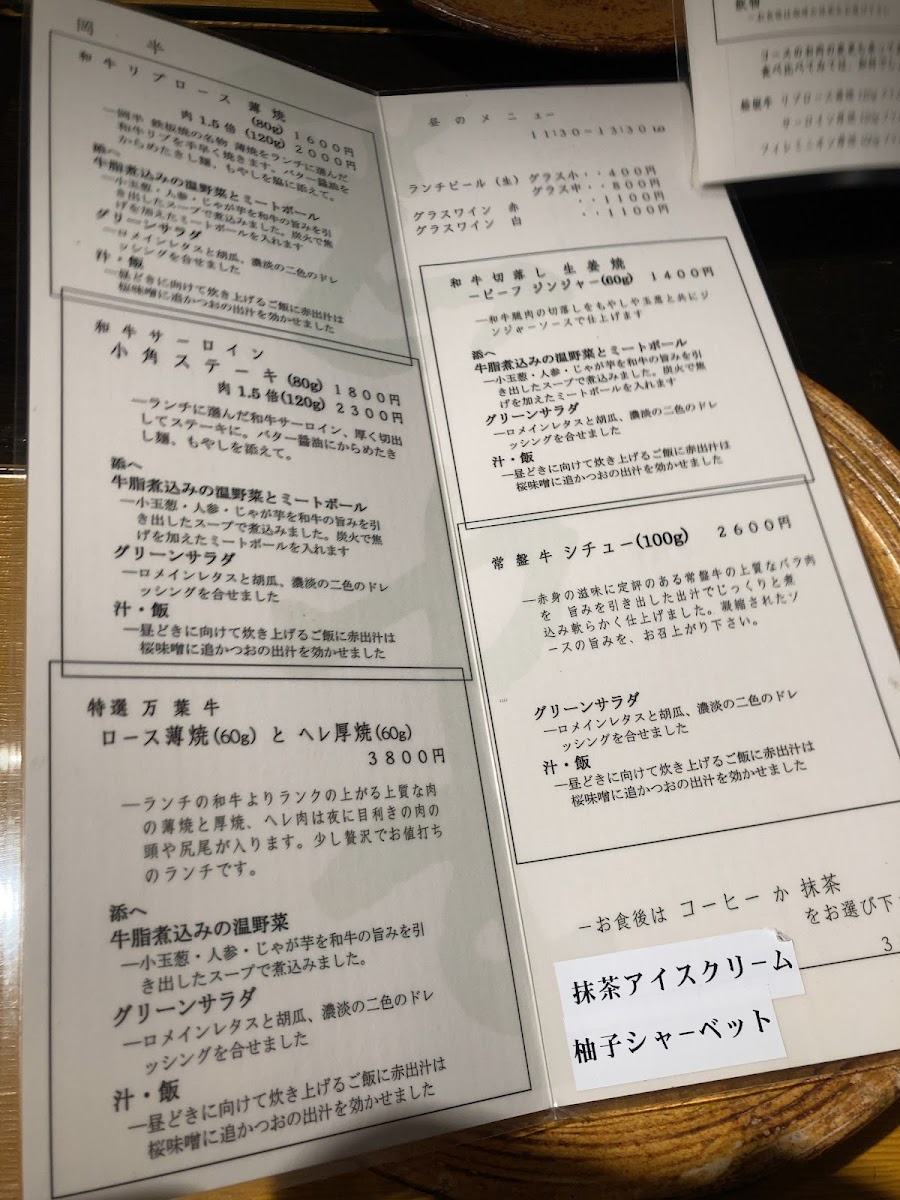 岡 半
和牛リブロース 薄 焼
(80g) 1600円
肉 1.5 倍 (120g) 2000円
―岡半 鉄板焼の名物 薄焼をランチに選んだ
和牛リブを手早く焼きます。バター醤油を
からめたきし麺、もやしを脇に添えて。
添へ
牛脂煮込みの温野菜とミートボール
―小玉葱・人参・じゃが芋を和牛の旨みを引
き出したスープで煮込みました。炭火で焦
げを加えたミートボールを入れます
グリーンサラダ
―ロメインレタスと胡瓜、濃淡の二色のドレ
ッシングを合せました
汁・飯
―昼どきに向けて炊き上げるご飯に赤出汁は
桜味噌に追かつおの出汁を効かせました
和牛サーロイン
小角ステーキ (80g) 1800円
肉 1.5 倍(120g) 2300円
―ランチに選んだ和牛サーロイン、厚く切出
してステーキに。バター醤油にからめたき
し麺、もやしを添えて。
添へ
牛脂煮込みの温野菜とミートボール
―小玉葱・人参・じゃが芋を和牛の旨みを引
き出したスープで煮込みました。炭火で焦
げを加えたミートボールを入れます
グリーンサラダ
―ロメインレタスと胡瓜、濃淡の二色のドレ
ッシングを合せました
汁・飯
―昼どきに向けて炊き上げるご飯に赤出汁は
桜味噌に追かつおの出汁を効かせました
特選 万葉牛
ロース薄焼(60g) と ヘレ厚焼(60g)
3800円
―ランチの和牛よりランクの上がる上質な肉
の薄焼と厚焼、ヘレ肉は夜に目利きの肉の
頭や尻尾が入ります。少し贅沢でお値打ち
のランチです。
添へ
牛脂煮込みの温野菜
―小玉葱・人参・じゃが芋を和牛の旨みを引
き出したスープで煮込みました。
グリーンサラダ
―ロメインレタスと胡瓜、濃淡の二色のドレ
ッシングを合せました
汁・飯
―昼どきに向けて炊き上げるご飯に赤出汁は
桜味噌に追かつおの出汁を効かせました
昼のメニュー
11:30－13:30 LO
ランチビール（生）グラス小・・400円
グラス中・・800円
グラスワイン 赤 ・・1100円
グラスワイン 白 ・・1100円
和牛切落し 生姜焼
－ビーフ ジンジャー(60g) 1400円
―和牛腿肉の切落しをもやしや玉葱と共にジ
ンジャーソースで仕上げます
添へ
牛脂煮込みの温野菜とミートボール
―小玉葱・人参・じゃが芋を和牛の旨みを引
き出したスープで煮込みました。炭火で焦
げを加えたミートボールを入れます
グリーンサラダ
―ロメインレタスと胡瓜、濃淡の二色のドレ
ッシングを合せました
汁・飯
―昼どきに向けて炊き上げるご飯に赤出汁は
桜味噌に追かつおの出汁を効かせました
常盤牛 シチュー(100g) 2600円
―赤身の滋味に定評のある常盤牛の上質なバラ肉
を 旨みを引き出した出汁でじっくりと煮
込み軟らかく仕上げました。凝縮されたソ
ースの旨みを、お召上がり下さい。
グリーンサラダ
―ロメインレタスと胡瓜、濃淡の二色のドレ
ッシングを合せました
汁・飯
―昼どきに向けて炊き上げるご飯に赤出汁は
桜味噌に追かつおの出汁を効かせました
－お食後は コーヒー か 抹茶
をお選び下
3
抹茶アイスクリーム
柚子シャーベット